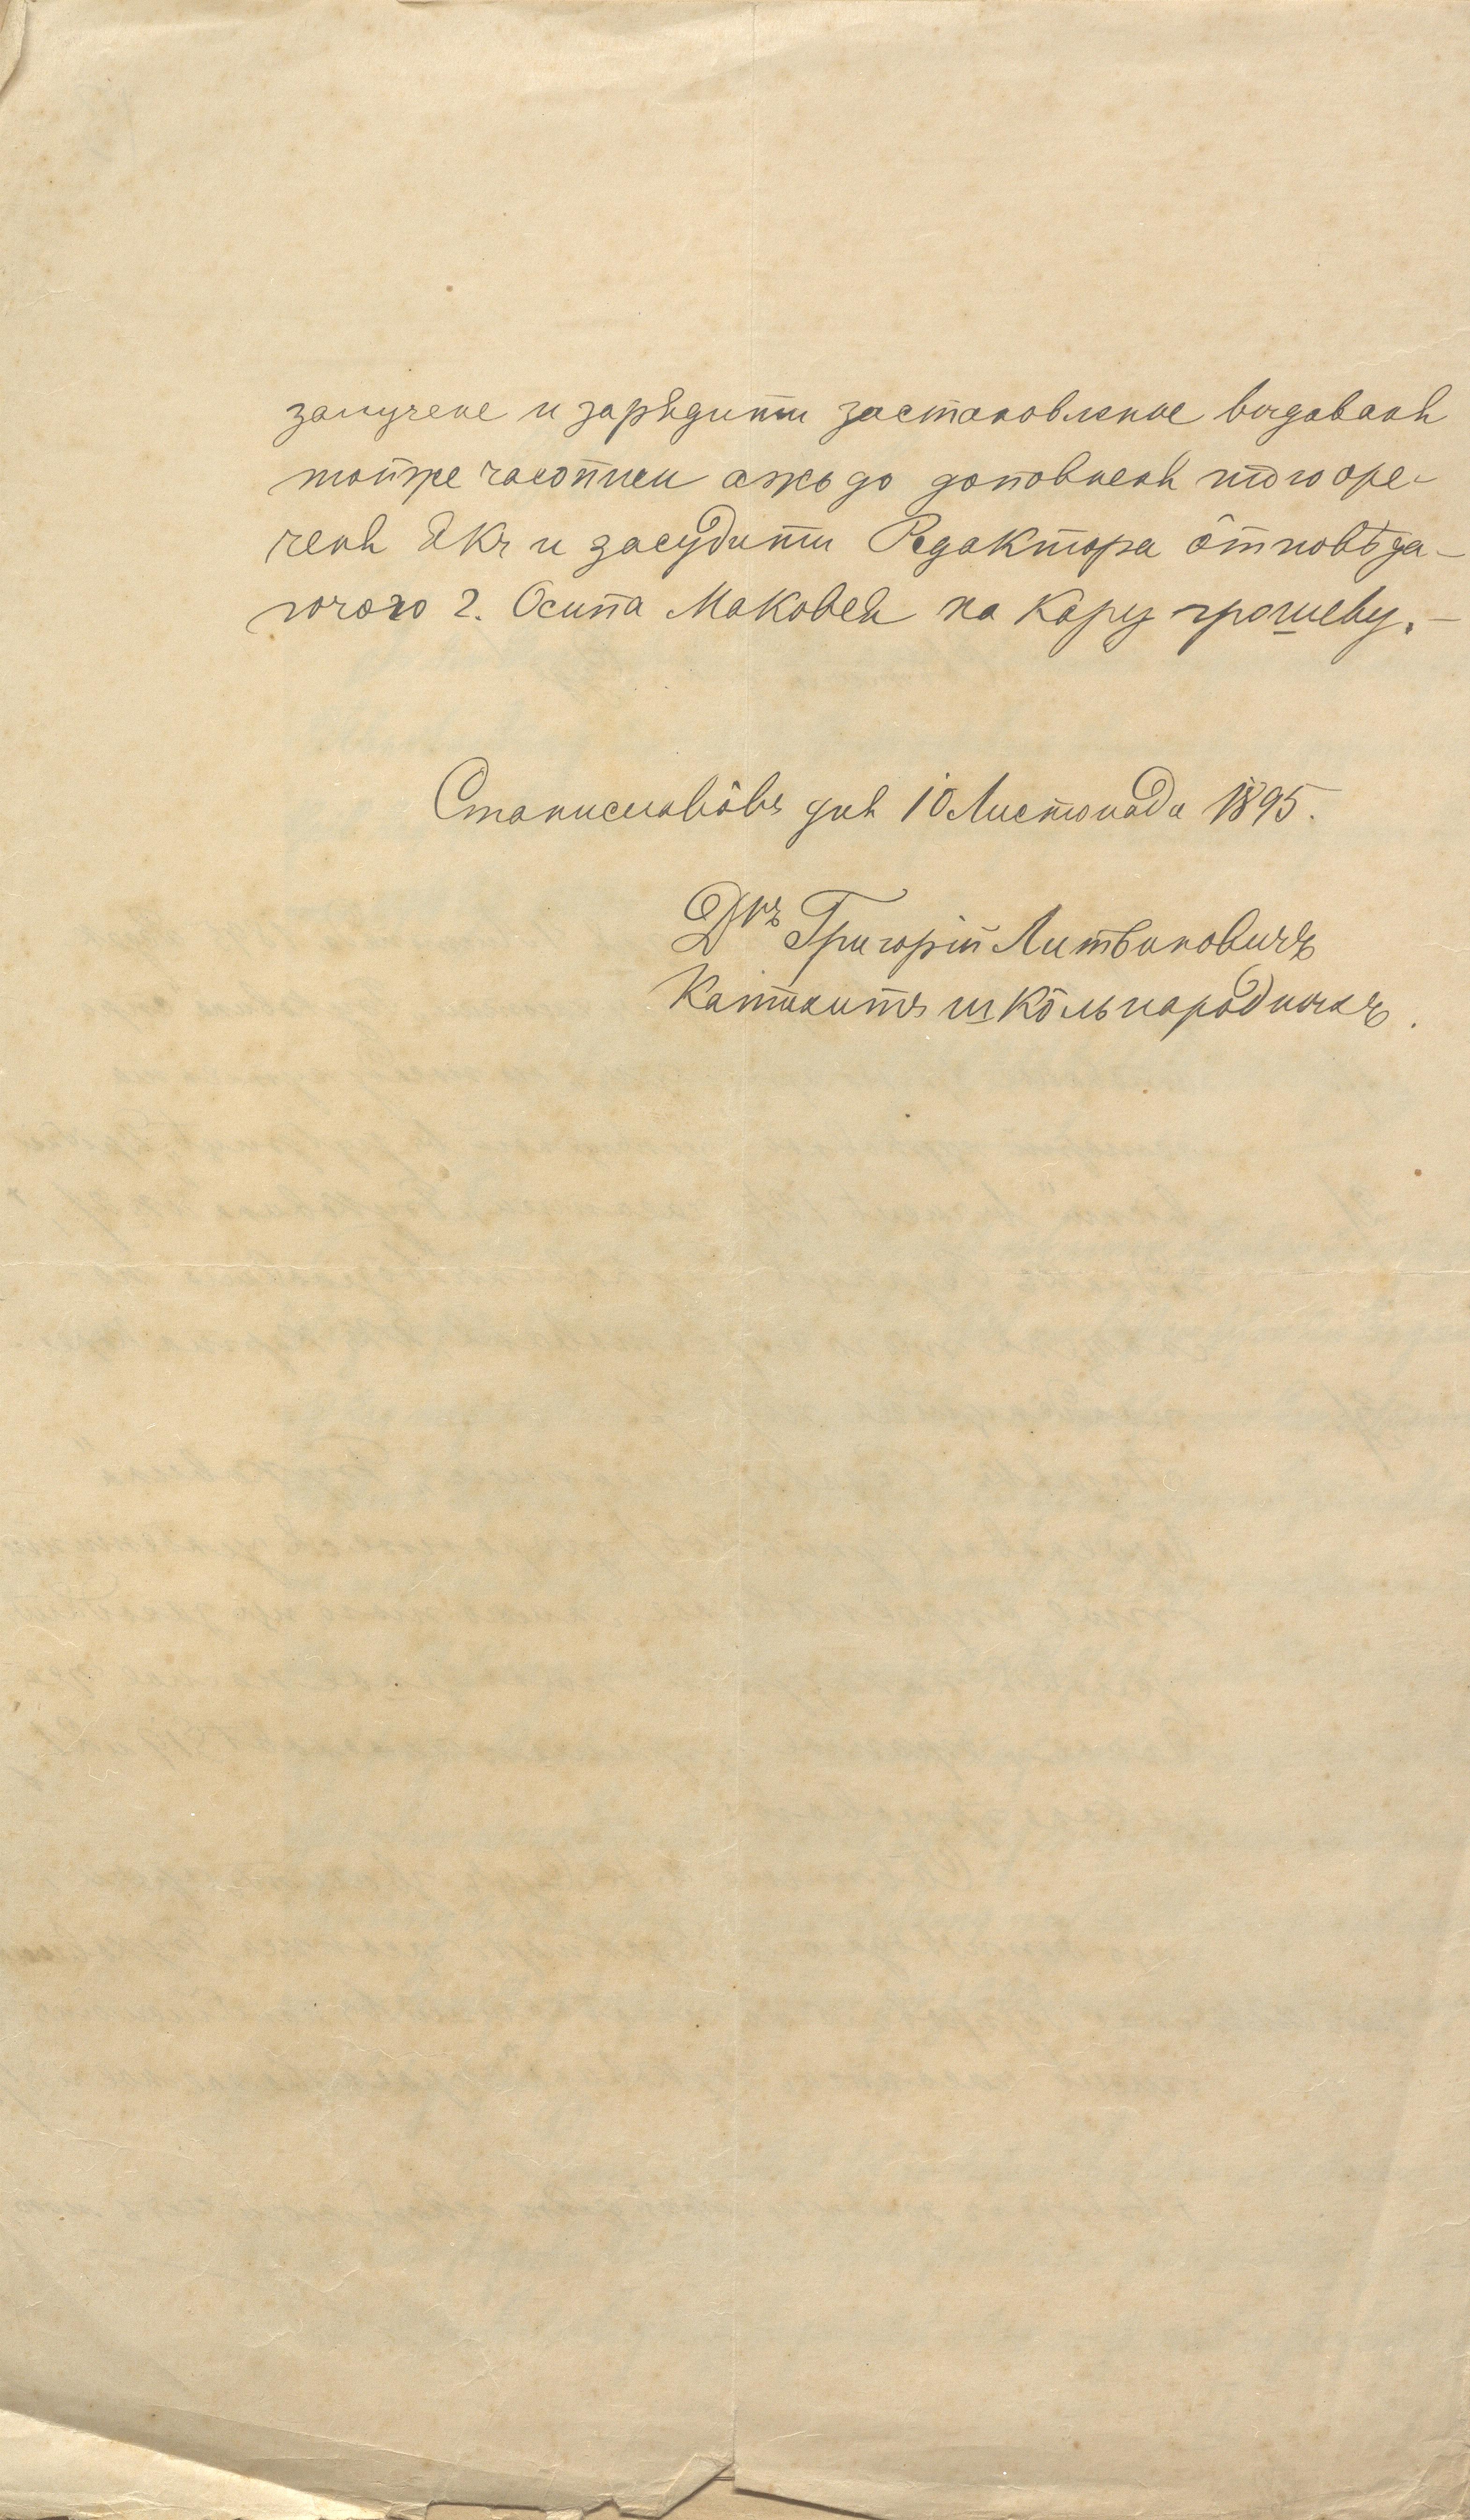 залучене и зарѣдити застановленье выдаваня
тойже часописи ажь до доповненя того оре-
ченя якъ и засудити Редактора ôтповѣда-
ючого г. Осипа Маковея на кару грошеву. —
Станиславôвъ дня 10 Листопада 1895.
Дръ Григорій Литвиновичъ
Катихитъ школъ народныхъ.